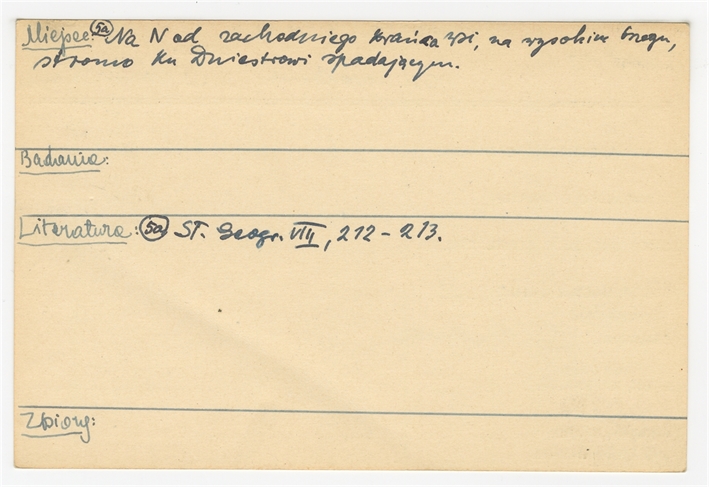 Miejsce: 5a Na N od zachodniego krańca wsi, na wysokim brzegu,
stromo ku Dniestrowi spadającym.
Badania:
Literatura: 5a Sł. Geogr. VIII, 212-213.
Zbiory: